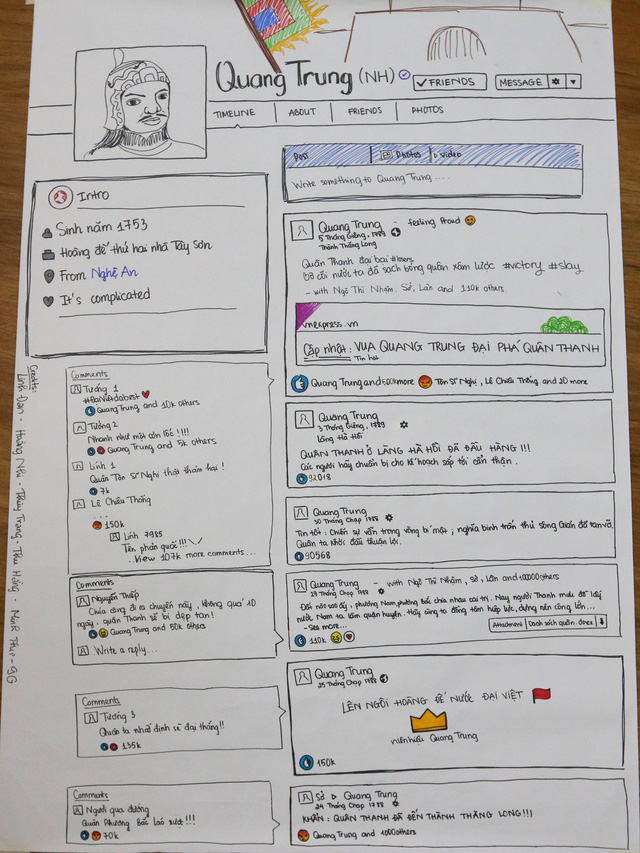 Quang Trung (NH)
✓ FRIENDS
MESSAGE
TIMELINE
ABOUT
FRIENDS
PHOTOS
Intro
Sinh năm 1753
Hoàng đế thứ hai nhà Tây Sơn
From Nghệ An
It's complicated
Post
Photos
Video
Write something to Quang Trung ....
Quang Trung - feeling proud
5 Tháng Giêng, 1789
Thành Thăng Long
Quân Thanh đại bại #losers
Bờ cõi nước ta đã sạch bóng quân xâm lược #victory #slay
- with Ngô Thì Nhậm, Sở, Lân and 110k others
vnexpress.vn
Cập nhật: VUA QUANG TRUNG ĐẠI PHÁ QUÂN THANH
Tin hot
Quang Trung and 500k more
Tôn Sĩ Nghị, Lê Chiêu Thống and 20 more
Comments
Tướng 1
#ĐạiViệtdabest
Quang Trung and 10k others
Tướng 2
Nhanh như một cơn lốc!!!!
Quang Trung and 5k others
Lính 1
Quân Tôn Sĩ Nghị thật thảm hại!
7k
Lê Chiêu Thống
...
150k
Lính 7985
Tên phản quốc!!!
...View 107k more comments...
Quang Trung
3 Tháng Giêng, 1789
Làng Hà Hồi
QUÂN THANH Ở LÀNG HÀ HỒI ĐÃ ĐẦU HÀNG!!!
Các ngươi hãy chuẩn bị cho kế hoạch sắp tới cẩn thận.
92018
Quang Trung
30 Tháng Chạp 1788
Tin tốt: Chiến sự vẫn trong vòng bí mật; nghĩa binh trấn thủ sông Gián đã tan vỡ.
Quân ta khởi đầu thuận lợi.
90568
Comments
Nguyễn Thiếp
Chúa công đi ra chuyến này, không quá 10
ngày, quân Thanh sẽ bị dẹp tan!
Quang Trung and 50k others
Write a reply...
Quang Trung - with Ngô Thì Nhậm, Sở, Lân and 100000 others
29 Tháng Chạp 1788
Đất nào sao ấy, phương Nam, phương Bắc chia nhau cai trị. Nay người Thanh mưu đồ lấy
nước Nam ta làm quận huyện. Hãy cùng ta đồng tâm hiệp lực, dựng nên công lớn...
-See more...
Attachment
Danh sách quân.docx
110k
Comments
Tướng 3
Quân ta nhất định sẽ đại thắng!!
135k
Quang Trung
25 Tháng Chạp 1788
LÊN NGÔI HOÀNG ĐẾ NƯỚC ĐẠI VIỆT
niên hiệu Quang Trung
150k
Comments
Người qua đường
Quân Phương Bắc láo xược!!!
70k
Sở ▷ Quang Trung
24 Tháng Chạp 1788
KHẨN: QUÂN THANH ĐÃ ĐẾN THÀNH THĂNG LONG!!!
Quang Trung and 1000 others
Credits:
Linh Đan - Hương Nhi - Thùy Trang - Thu Hương - Minh Thư - 9G